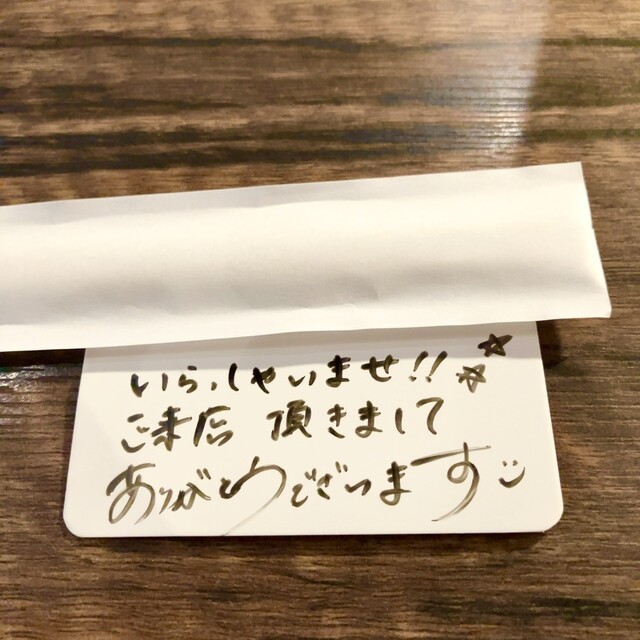 いらっしゃいませ!!
ご来店 頂きまして
ありがとうございます